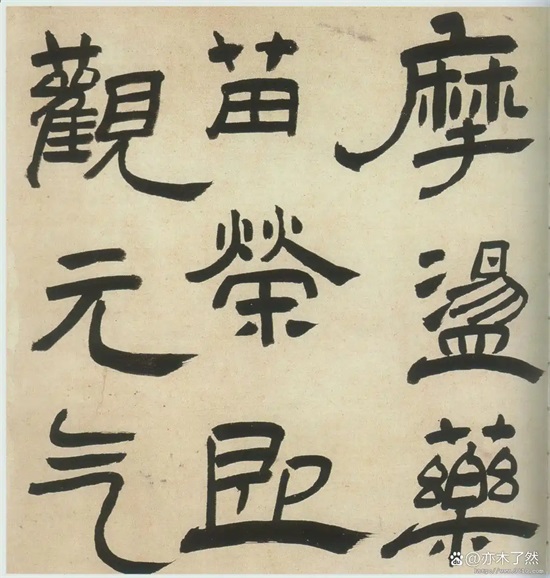 摩盪藥
苗榮即
觀元气
@亦木了然